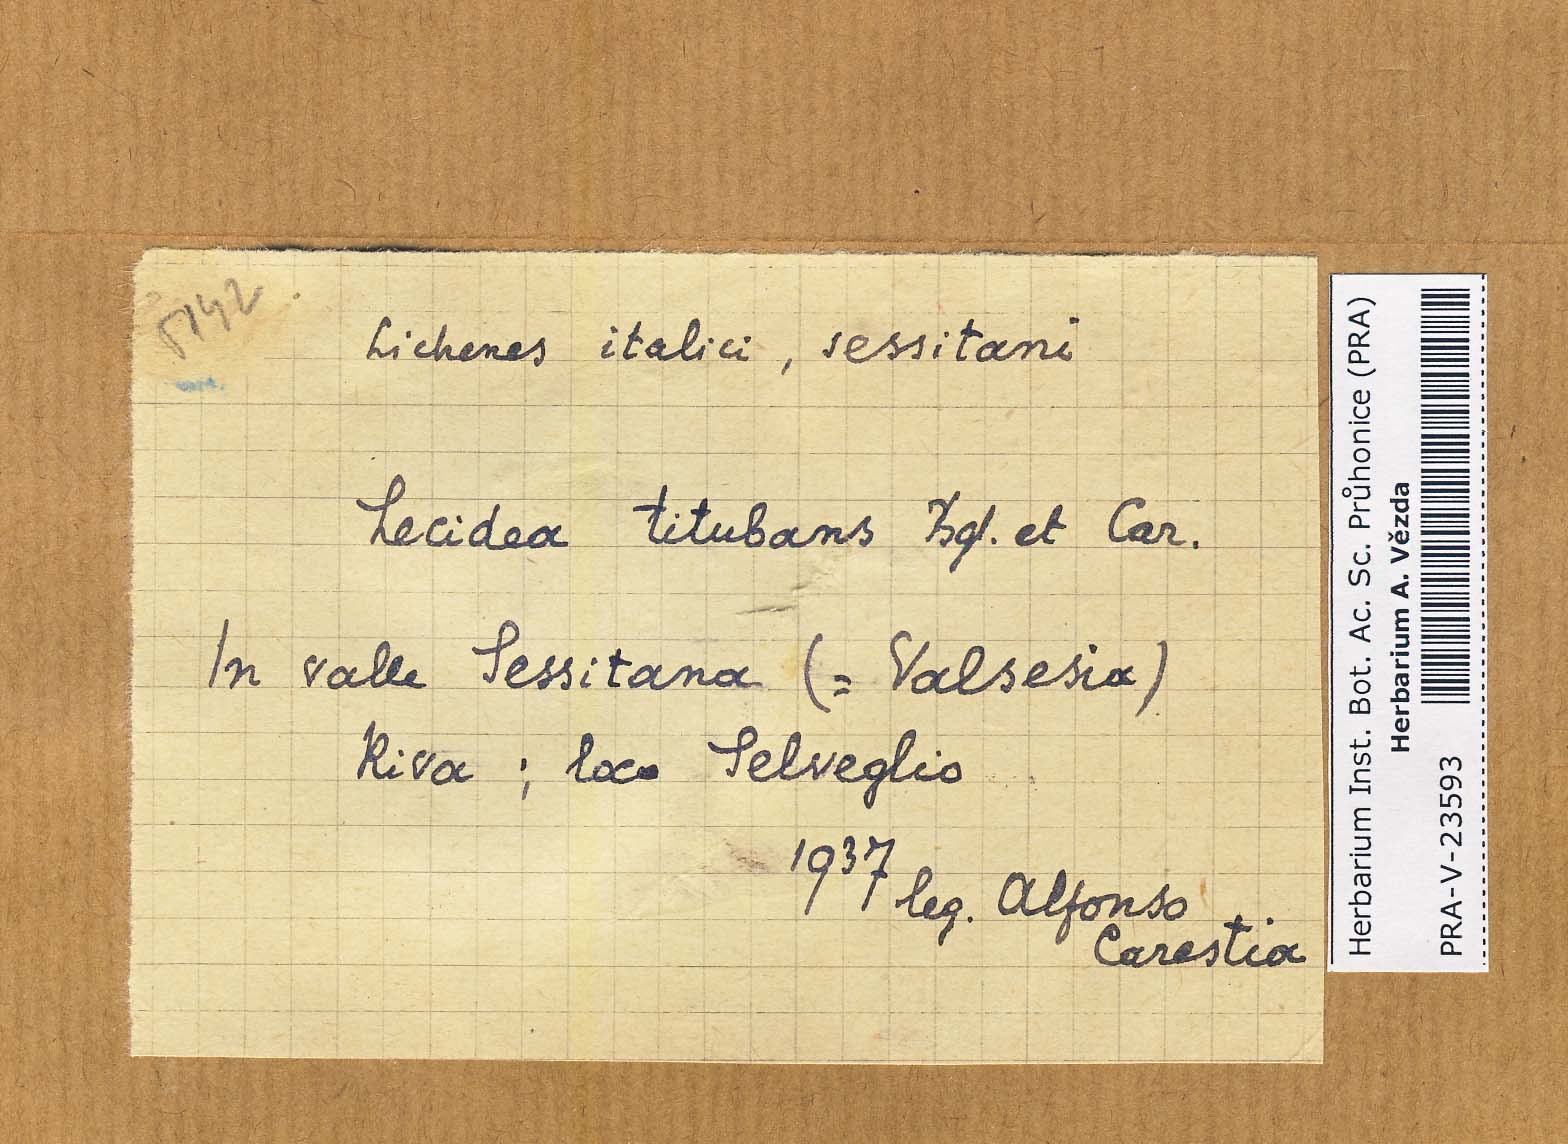 5142
Lichenes italici, sessitani
Lecidea titubans Bgl. et Car.
In valle Sessitana (= Valsesia)
Riva ; loco Selveglio
1937 leg. Alfonso
Carestia
Herbarium Inst. Bot. Ac. Sc. Průhonice (PRA)
Herbarium A. Vězda
PRA-V-23593